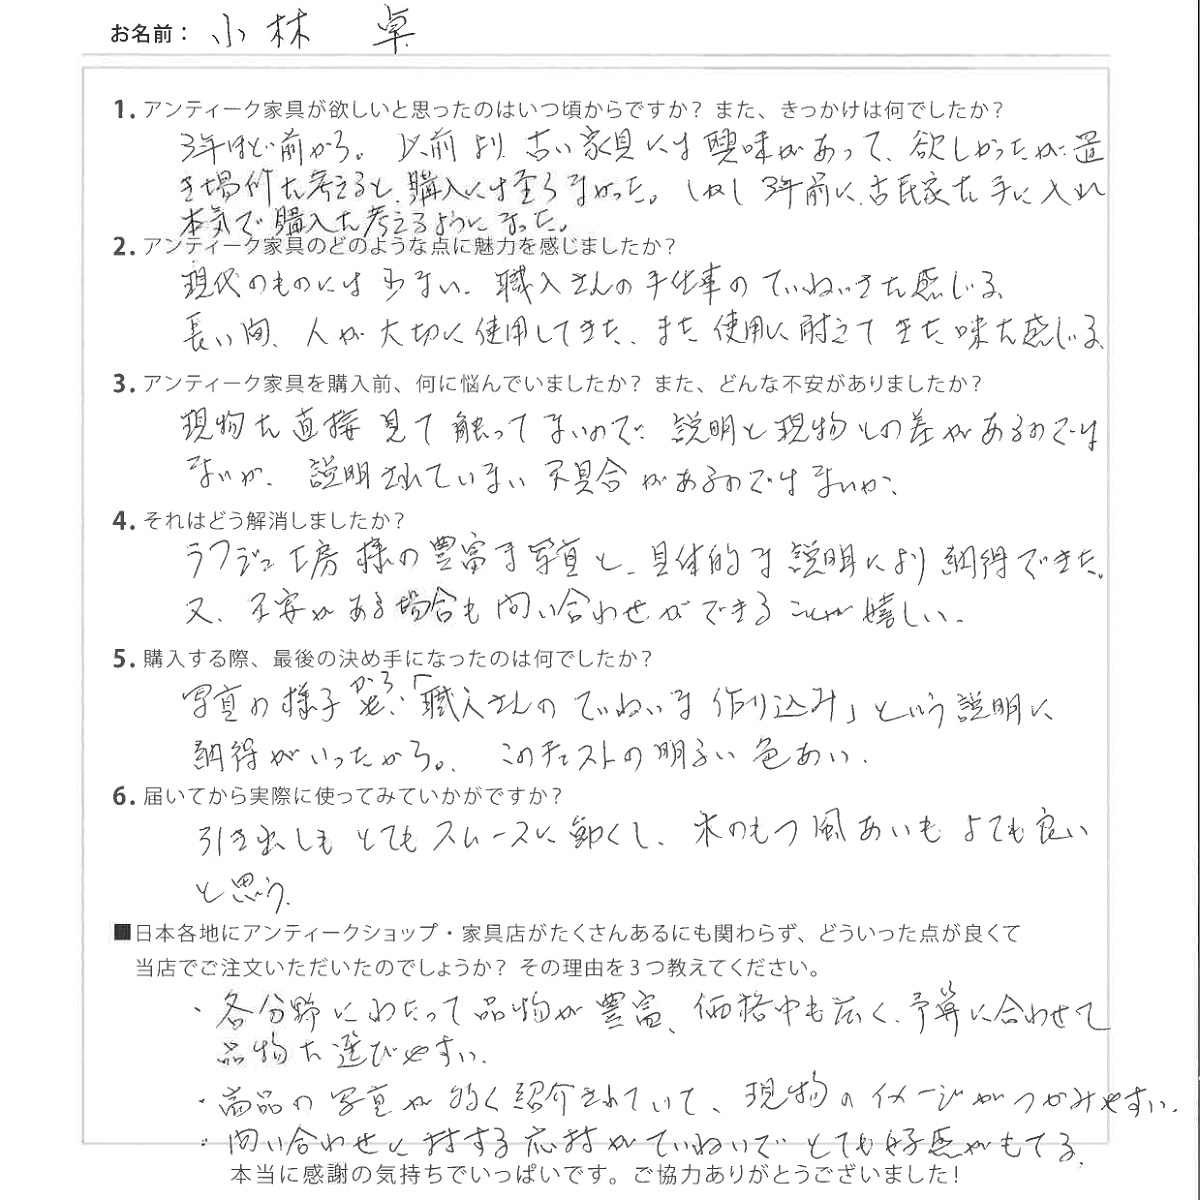 お名前： 小林 卓
1. アンティーク家具が欲しいと思ったのはいつ頃からですか？ また、きっかけは何でしたか？
3年ほど前から。 以前より 古い家具には興味があって、欲しかったが 置
き場所を考えると、購入には至らなかった。 しかし3年前に、古民家を手に入れ
本気で購入を考えるようになった。
2. アンティーク家具のどのような点に魅力を感じましたか？
現代のものには少ない、職人さんの手仕事のていねいさを感じる
長い間、人が大切に使用してきた、また使用に耐えてきた味を感じる
3. アンティーク家具を購入前、何に悩んでいましたか？ また、どんな不安がありましたか？
現物を直接見て触ってないので、説明と現物との差があるのでは
ないか、説明されていない不具合があるのではないか、
4. それはどう解消しましたか？
ラフジュ工房様の豊富な写真と、具体的な説明により納得できた。
又、不安がある場合も問い合わせができることが嬉しい。
5. 購入する際、最後の決め手になったのは何でしたか？
写真の様子から、「職人さんのていねいな作り込み」という説明に
納得がいったから。 このチェストの明るい色あい。
6. 届いてから実際に使ってみていかがですか？
引き出しもとてもスムースに動くし、木のもつ風あいもとても良い
と思う。
■日本各地にアンティークショップ・家具店がたくさんあるにも関わらず、どういった点が良くて
当店でご注文いただいたのでしょうか？ その理由を３つ教えてください。
・各分野にわたって品物が豊富、価格巾も広く、予算に合わせて
品物を選びやすい。
・商品の写真が多く紹介されていて、現物のイメージがつかみやすい。
・問い合わせに対する応対がていねいでとても好感がもてる。
本当に感謝の気持ちでいっぱいです。ご協力ありがとうございました！